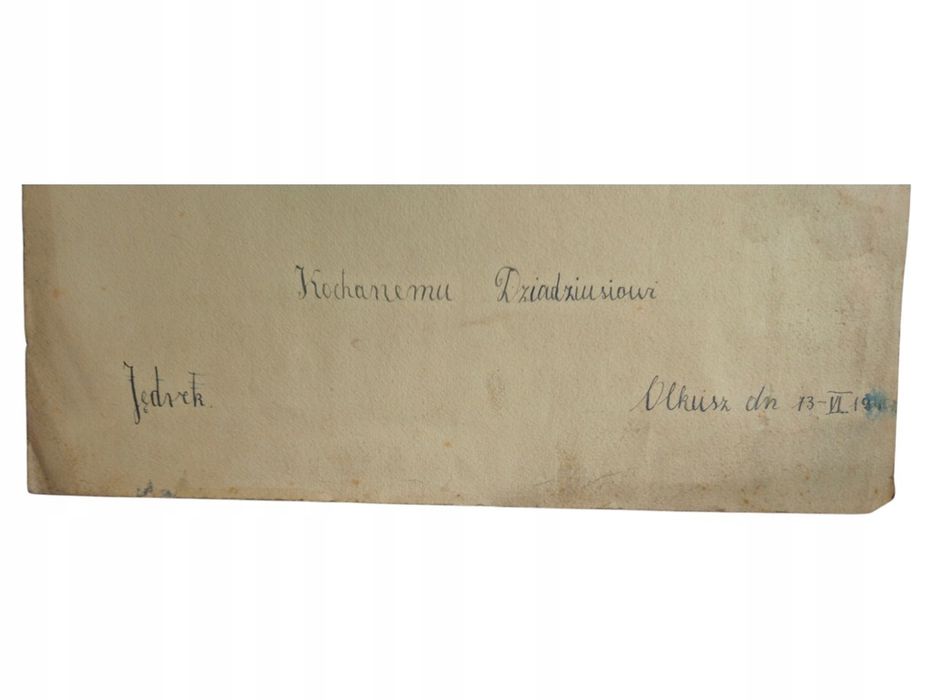 Kochanemu Dziadziusiowi
Jędrek.
Olkusz dn 13-VI.19